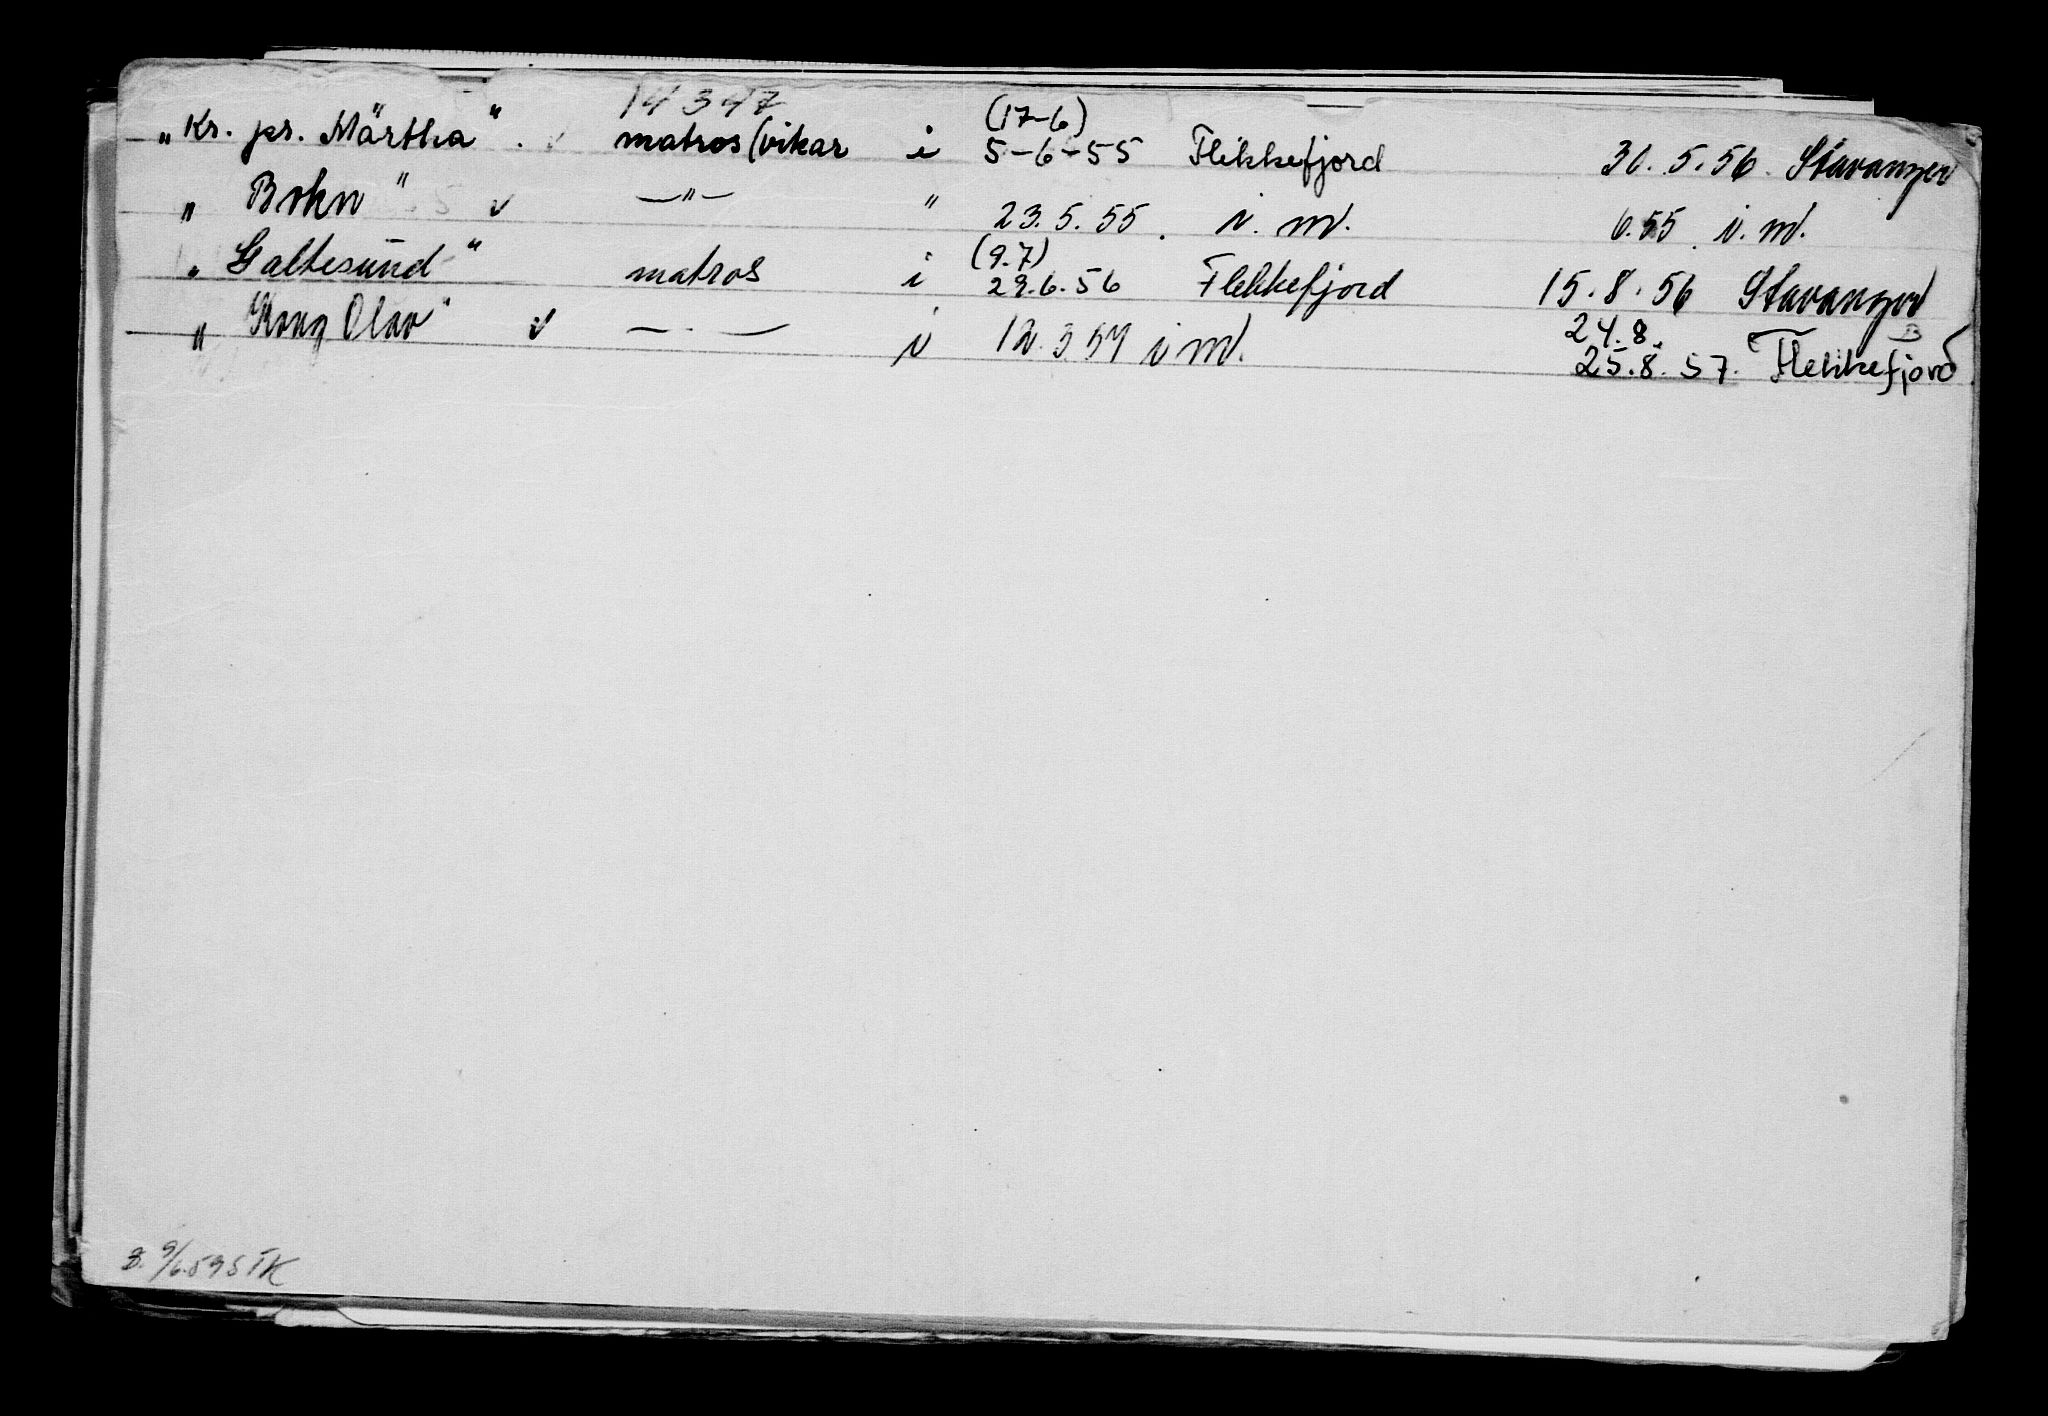 14347
„Kr. pr. Märtha". v matros (vikar i (17-6) 5-6-55 Flekkefjord 30.5.56. Stavanger
„Bokn" v —„— " 23.5.55. i. m. 6.55. i. m.
„Galtesund" matros i (9.7) 29.6.56 Flekkefjord 15.8.56 Stavanger
„Kong Olav" v — . — i 12.3 57 i m. 24.8. 25.8.57. Flekkefjord